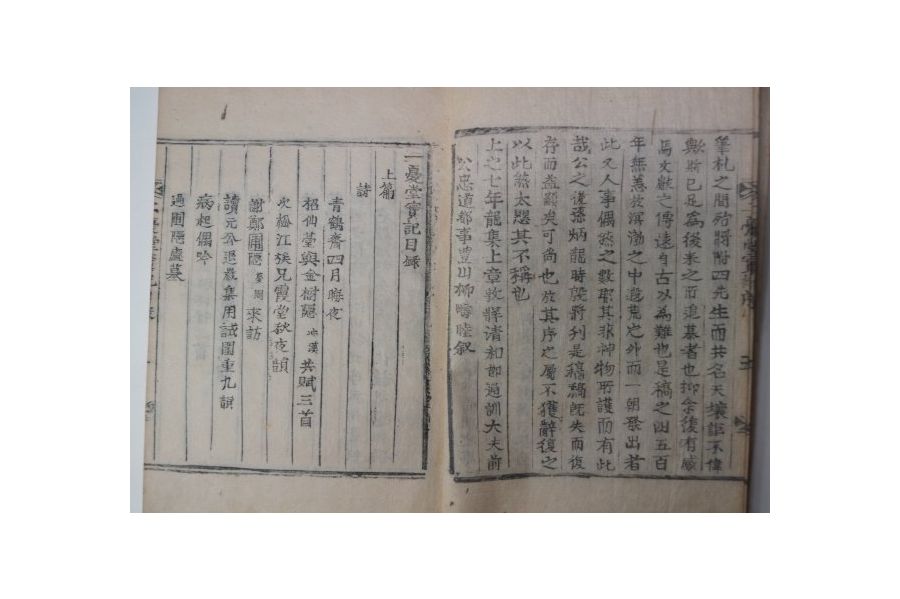 筆札之間殆將附四先生而共名天壤詎不偉
歟斯已足爲後來之而追慕者也抑余後有感
焉文獻之傳遠自古以爲難也是稿之出五百
年無恙於溟渤之中遐荒之外而一朝發出者
此又人事偶然之數耶其非神物所護而有此
哉公之後孫炳龍時毅將刊是稿稿旣失而復
存而益顯矣可尚也於其序之屬不獲辭復之
以此然太畧其不稱也
上之七年龍集上章敦牂淸和節通訓大夫前
公忠道都事豊山柳疇睦叙
一憂堂實記目錄
上篇
詩
青鶴齋四月晦夜
招仙臺與金樹隱冲漢共賦三首
次松江族兄霞堂秋夜韻
謝鄭圃隱夢周來訪
讀元分
集用誠國重九韻
病起偶吟
過圃隱廬墓